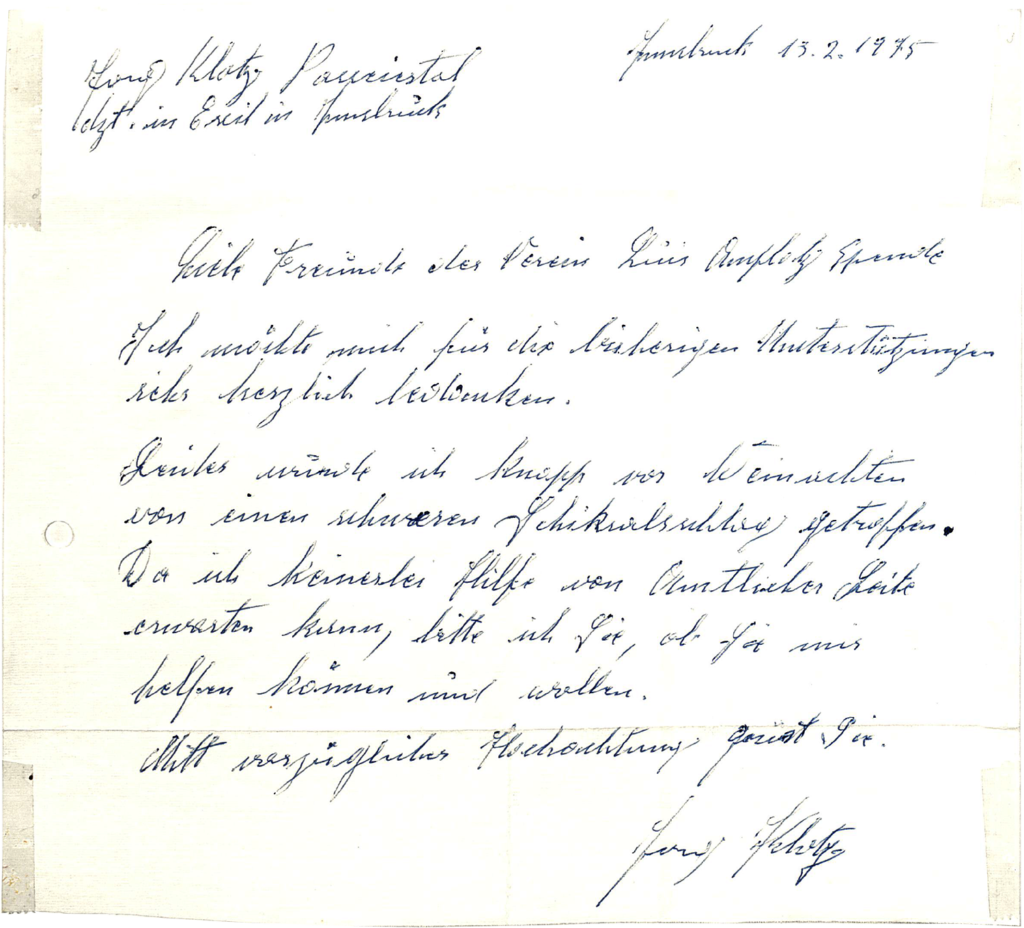 Jörg Klotz Passeiertal
dzt. in Exiel in Innsbruck
Innsbruck 13.2.1975
Liebe Freunde des Verein Luis Amplatz Spende
Ich möchte mich für die bisherigen Unterstützungen
sehr herzlich bedanken.
Leider wurde ich knapp vor Weinachten
von einen schweren Schiksalsschlag getroffen.
Da ich keinerlei Hilfe von Amtlicher Seite
erwarten kann, bitte ich Sie, ob Sie mir
helfen können und wollen.
Mitt vorzüglicher Hochachtung grüst Sie.
Jörg Klotz